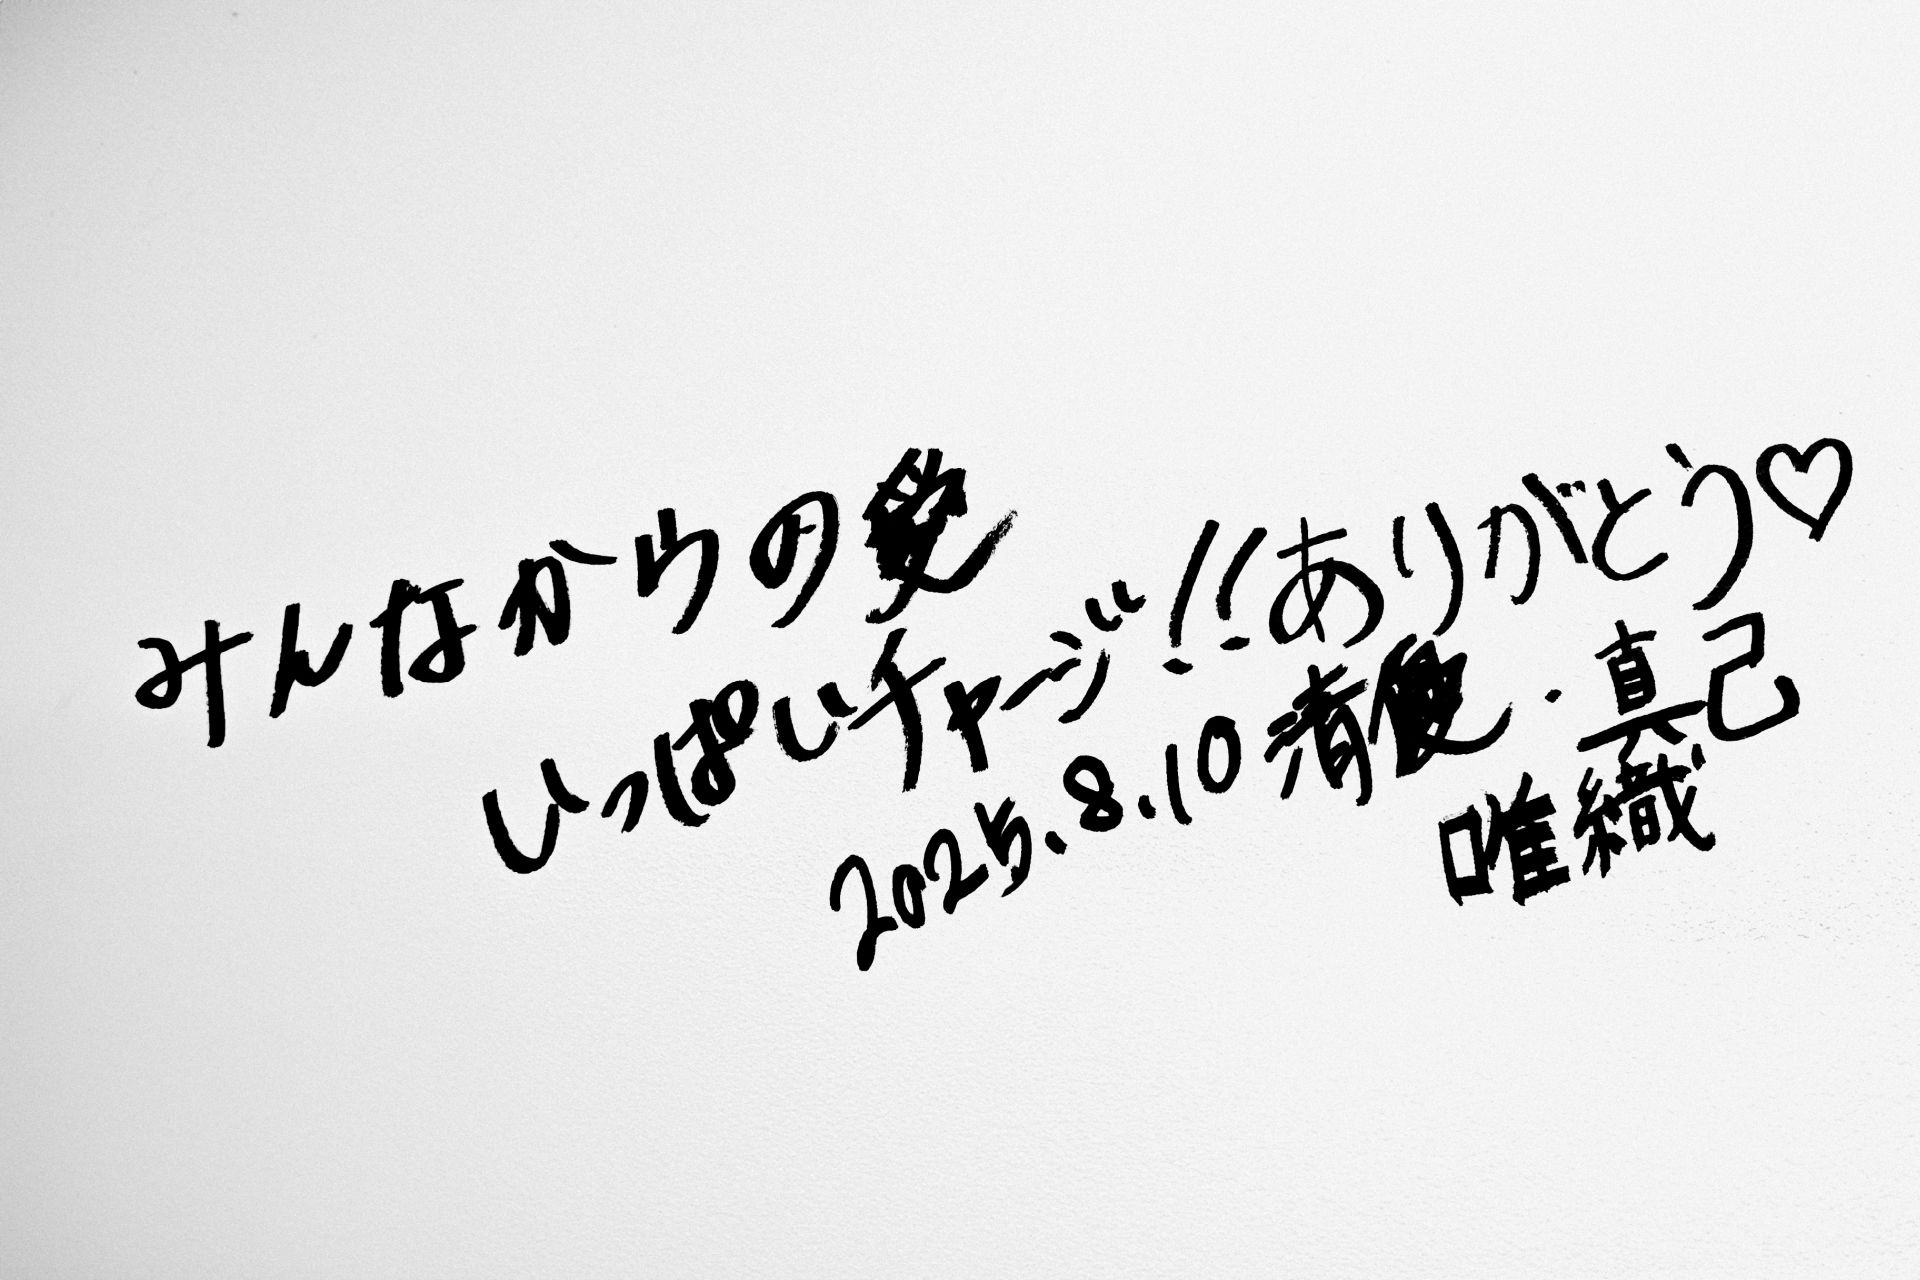 みんなからの愛
いっぱいチャージ!!ありがとう♡
2025.8.10 清愛・真己
唯織